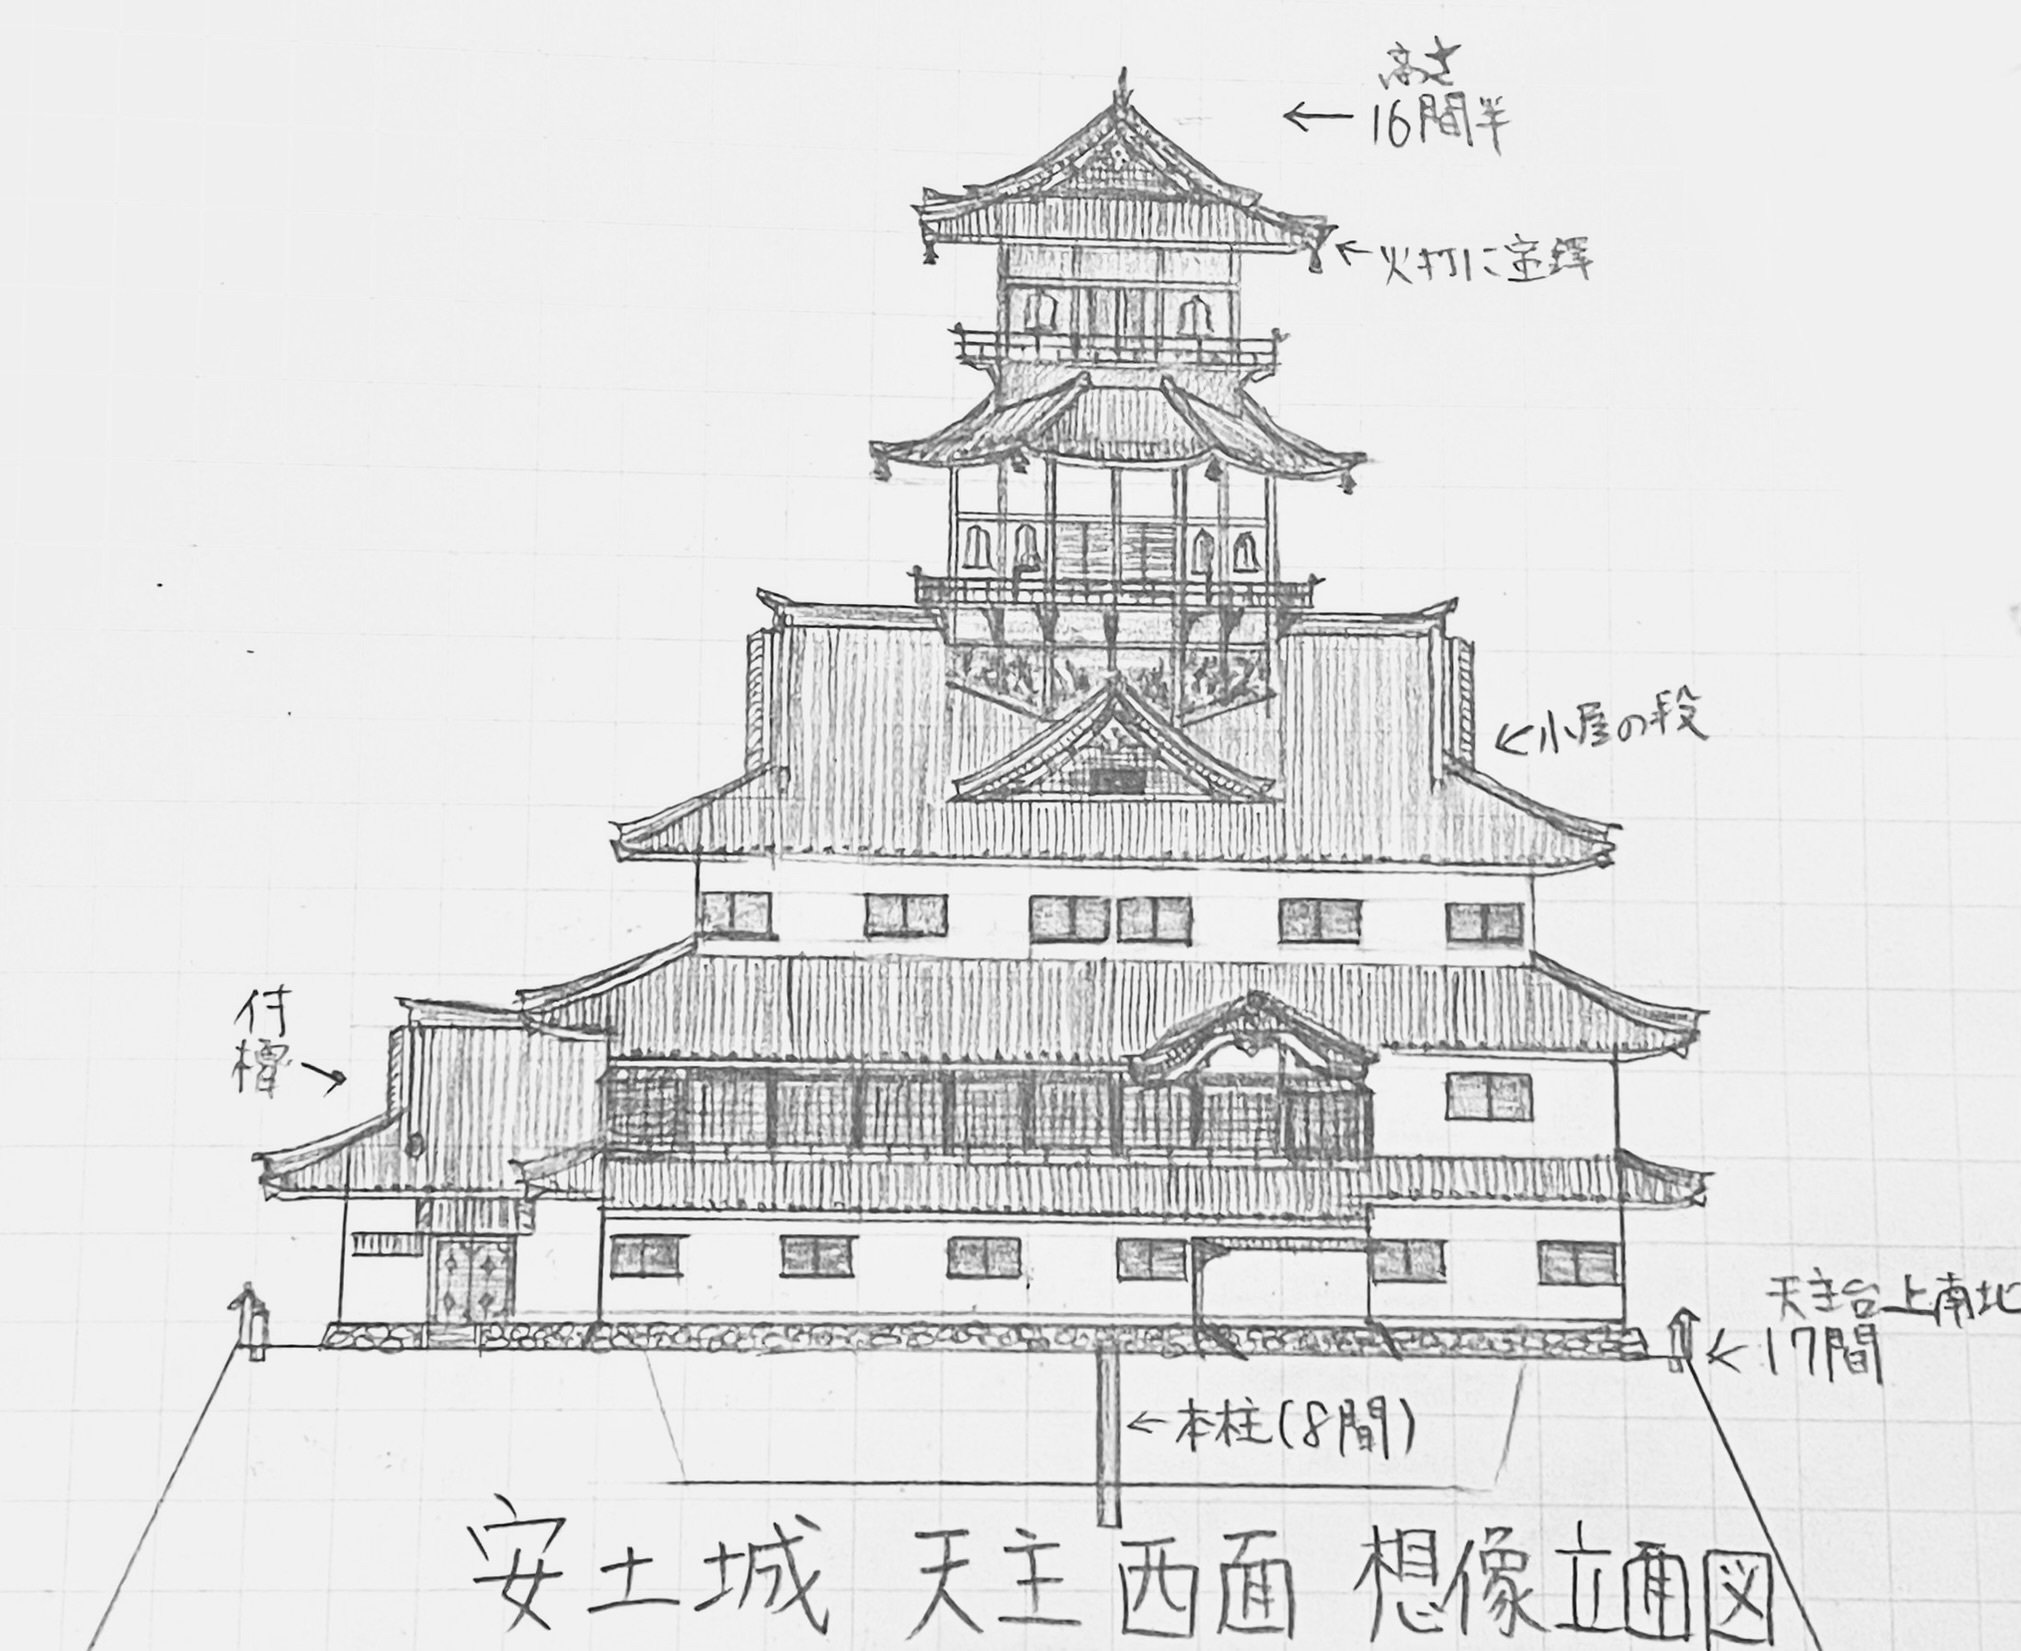 高さ
16間半
火打に宝鐸
小屋の段
付
櫓
天主台上南北
17間
本柱(8間)
安土城 天主西面 想像立面図